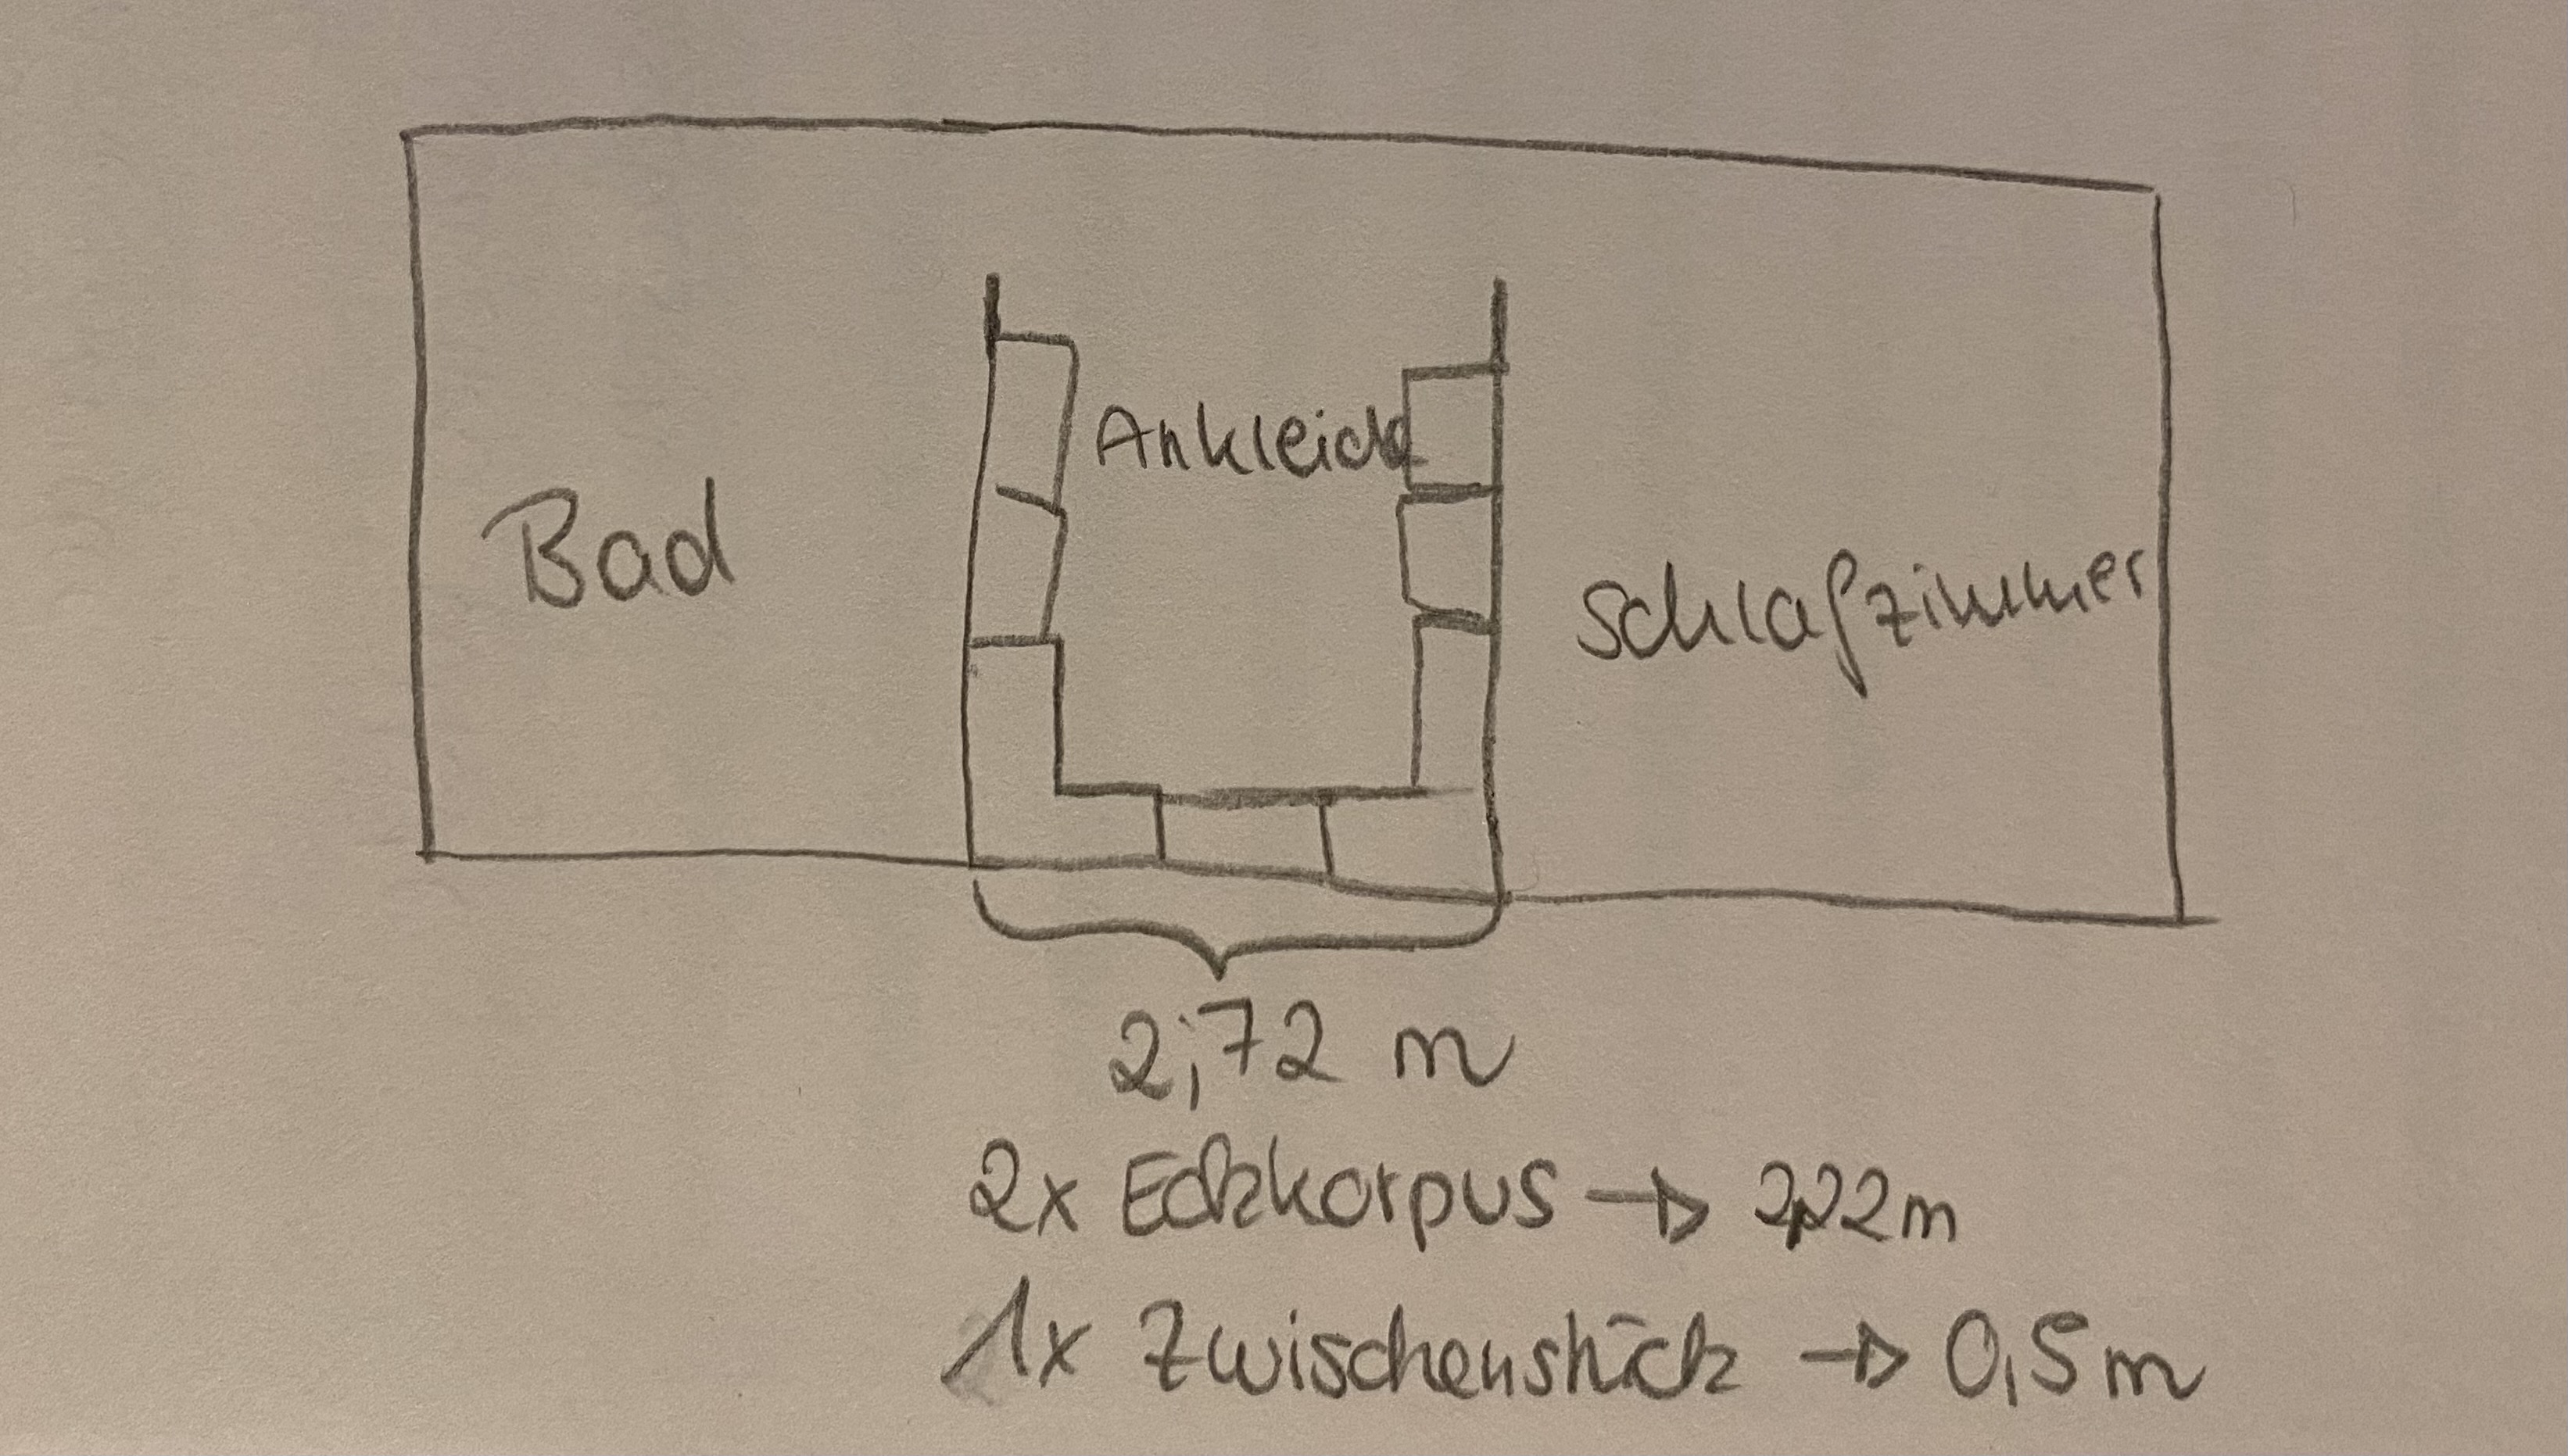 Ankleide
Bad
Schlafzimmer
2,72 m
2x Eckkorpus → 2,22m
1x Zwischenstück → 0,5m